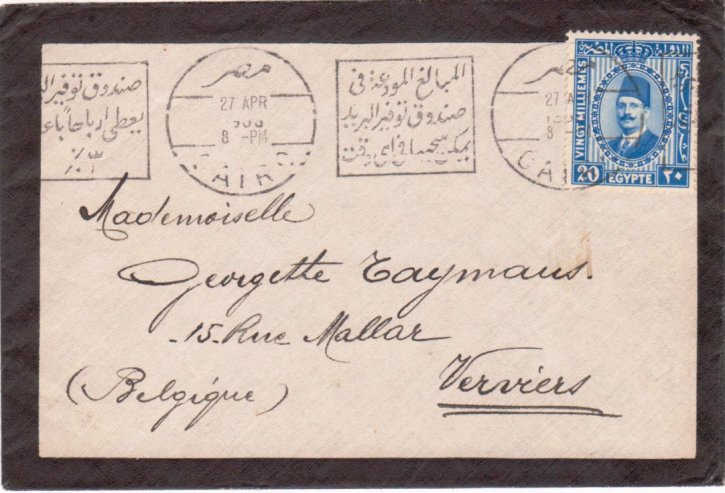 صندوق توفير الـ
يعطى ارباحا بانـ
٣٪
مصر
27 APR
8 -PM
CAIRO
المبالغ المودعة فى
صندوق توفير البريد
يمكن سحبها فى اى وقت
مصر
27 A
CAI
VINGT MILLIEMES
20 EGYPTE ٢٠
Mademoiselle
Georgette Taymans.
15. Rue Mallar
Verviers
(Belgique)